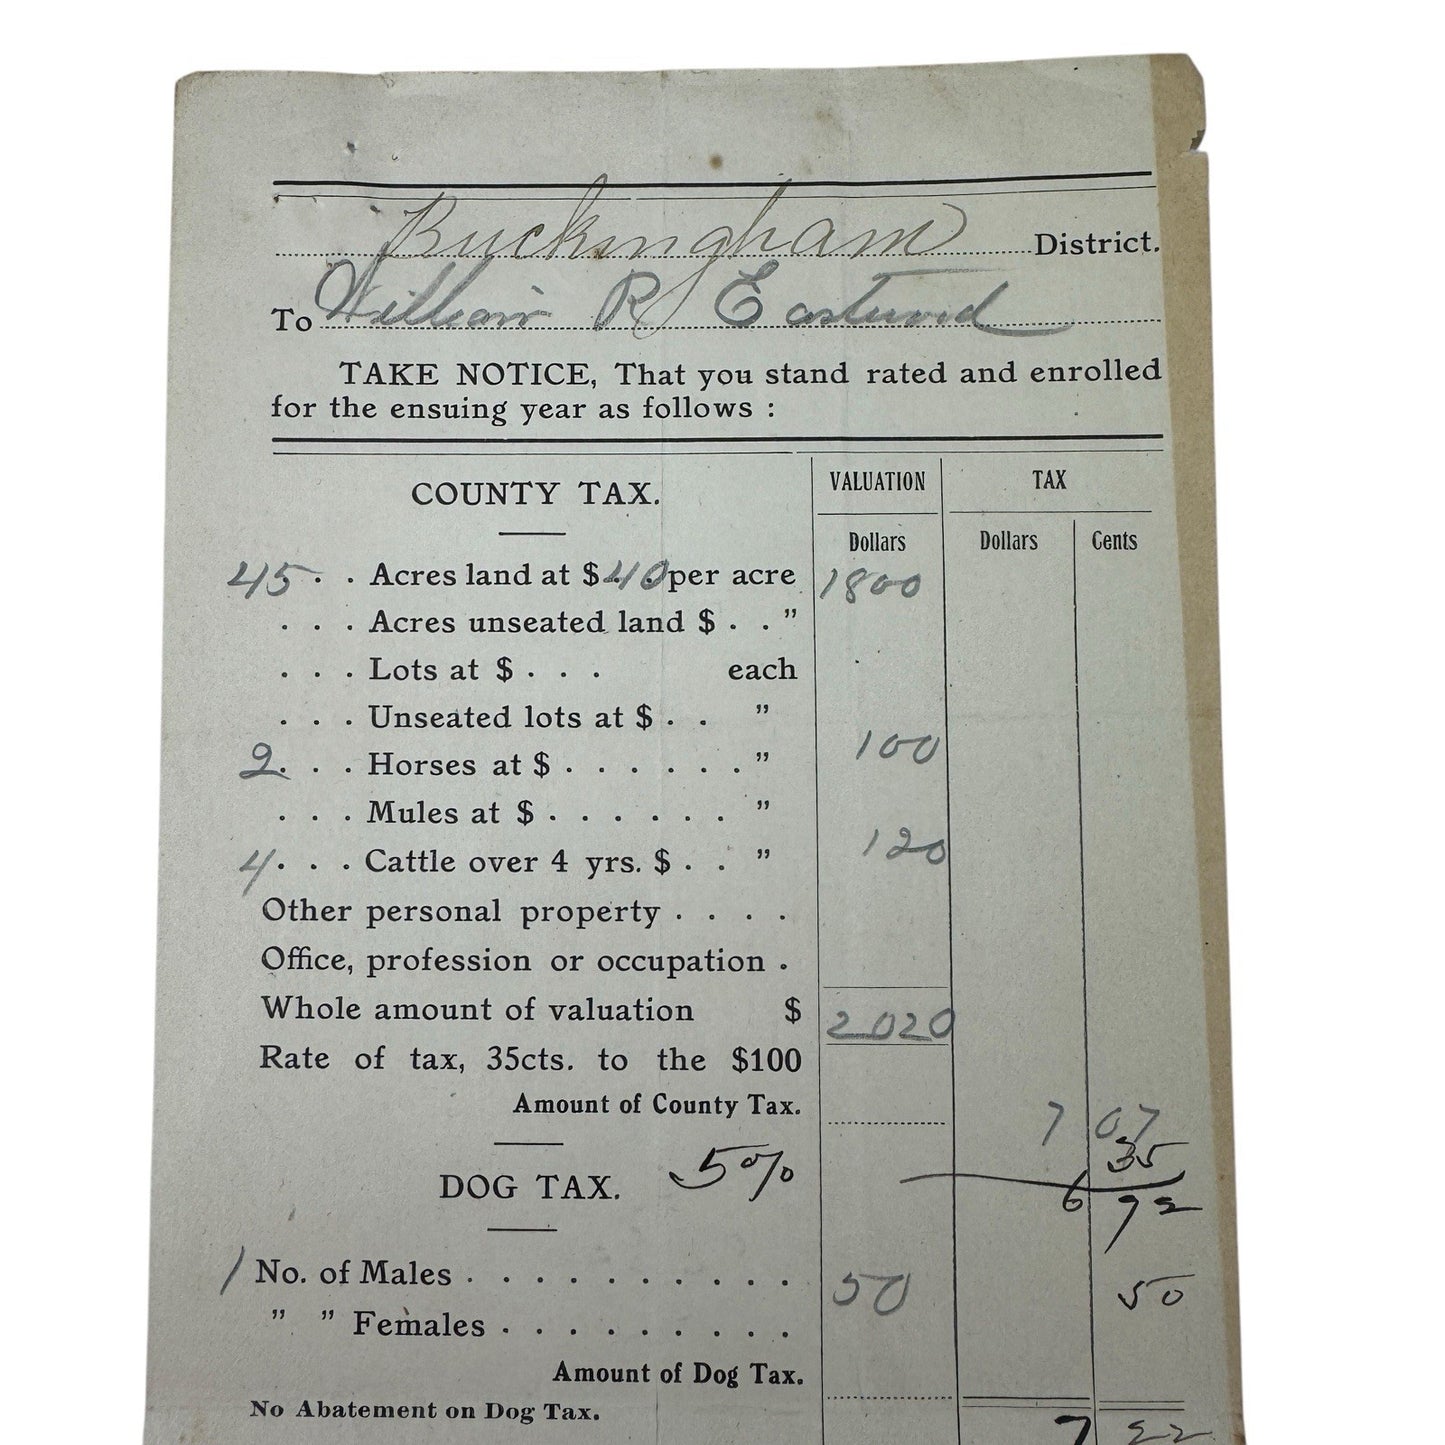 Buckingham District.
To William R Eastwood
TAKE NOTICE, That you stand rated and enrolled
for the ensuing year as follows :
COUNTY TAX.
VALUATION TAX
Dollars Dollars Cents
45 . . Acres land at $ 40 per acre 1800
. . . Acres unseated land $ . . "
. . . Lots at $ . . . each
. . . Unseated lots at $ . . "
2 . . . Horses at $ . . . . . . " 100
. . . Mules at $ . . . . . . "
4 . . . Cattle over 4 yrs. $ . . " 120
Other personal property . . . .
Office, profession or occupation .
Whole amount of valuation $ 2020
Rate of tax, 35cts. to the $100
Amount of County Tax. 7 07
35
DOG TAX. 5% 6 72
1 No. of Males . . . . . . . . . . 50 50
" " Females . . . . . . . . .
Amount of Dog Tax.
No Abatement on Dog Tax.
7 22